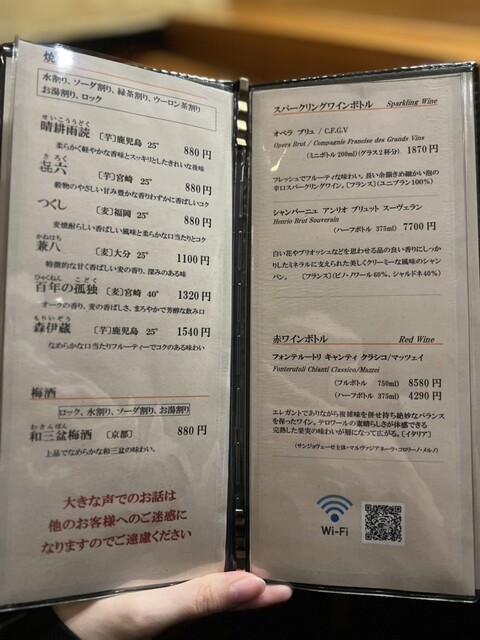 焼
水割り、ソーダ割り、緑茶割り、ウーロン茶割り
お湯割り、ロック
せいこううどく
晴耕雨読 〔芋〕鹿児島 25° 880円
柔らかく軽やかな香味とスッキリとしたきれいな後味
きろく
㐂六 〔芋〕宮崎 25° 880円
穀物のやさしい甘み豊かな香りわずかに香ばしいコク
つくし 〔麦〕福岡 25° 880円
麦焼酎らしい香ばしい風味と柔らかな口当たりとコク
かねはち
兼八 〔麦〕大分 25° 1100円
特徴的な甘く香ばしい麦の香り、深みのある味
ひゃくねん こどく
百年の孤独 〔麦〕宮崎 40° 1320円
オークの香り、麦の香ばしさ、まろやかで芳醇な飲み口
もりいぞう
森伊蔵 〔芋〕鹿児島 25° 1540円
なめらかな口当たりフルーティーでコクのある味わい
梅酒
ロック、水割り、ソーダ割り、お湯割り
わさんぼん
和三盆梅酒 〔京都〕 880円
上品でなめらかな和三盆の味わい。
大きな声でのお話は
他のお客様へのご迷惑に
なりますのでご遠慮ください
スパークリングワインボトル Sparkling Wine
オペラ ブリュ / C.F.G.V
Opera Brut / Compagnie Francaise des Grands Vins
(ミニボトル 200ml)(グラス2杯分) 1870円
フレッシュでフルーティな味わい、長い余韻きめ細かい泡の
辛口スパークリングワイン。〔フランス〕(ユニブラン100%)
シャンパーニュ アンリオ ブリュット スーヴェラン
Henrio Brut Souverain
(ハーフボトル 375ml) 7700円
白い花やブリオッシュなどを思わせる品の良い香りにしっか
りしたミネラルに支えられた美しくクリーミーな風味のシャン
パン。 〔フランス〕(ピノ・ノワール60%、シャルドネ40%)
赤ワインボトル Red Wine
フォンテルートリ キャンティ クラシコ/マッツェイ
Fonterutoli Chianti Classico/Mazzei
(フルボトル 750ml) 8580円
(ハーフボトル 375ml) 4290円
エレガントでありながら複雑味を併せ持ち絶妙なバランス
を保ったワイン。テロワールの素晴らしさが体感できる
完熟した果実の味わいが層になって広がる。〔イタリア〕
(サンジョヴェーゼ主体・マルヴァジアネーラ・コロリーノ・メルノ)
Wi-Fi